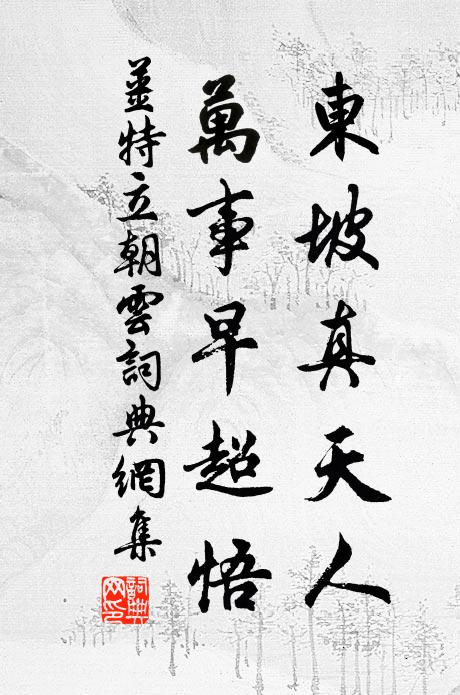 東坡真天人
萬事早超悟
薑特立朝雲詞典網集
詞典
网印